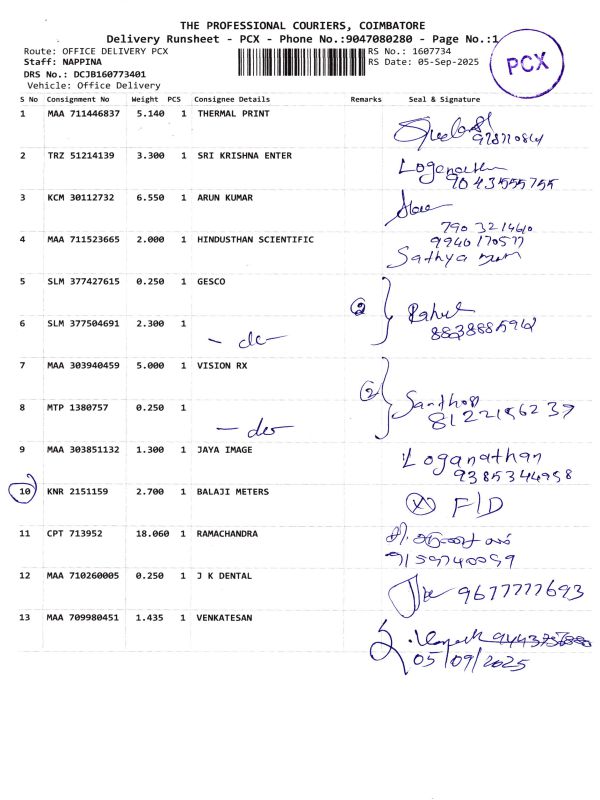 THE PROFESSIONAL COURIERS, COIMBATORE
Delivery Runsheet - PCX - Phone No.:9047080280 - Page No.:1
PCX
Route: OFFICE DELIVERY PCX RS No.: 1607734
Staff: NAPPINA RS Date: 05-Sep-2025
DRS No.: DCJB160773401
Vehicle: Office Delivery
S No Consignment No Weight PCS Consignee Details Remarks Seal & Signature
1 MAA 711446837 5.140 1 THERMAL PRINT
2 TRZ 51214139 3.300 1 SRI KRISHNA ENTER Loganathan
9043555755
3 KCM 30112732 6.550 1 ARUN KUMAR
7903221460
4 MAA 711523665 2.000 1 HINDUSTHAN SCIENTIFIC 9940170577
Sathya
5 SLM 377427615 0.250 1 GESCO
2 Rahul
6 SLM 377504691 2.300 1
- do -
7 MAA 303940459 5.000 1 VISION RX
2 Santhosh
8 MTP 1380757 0.250 1 8122156237
- do -
9 MAA 303851132 1.300 1 JAYA IMAGE Loganathan
9385344958
10 KNR 2151159 2.700 1 BALAJI METERS X F/D
11 CPT 713952 18.060 1 RAMACHANDRA
9159740059
12 MAA 710260005 0.250 1 J K DENTAL 9677777693
13 MAA 709980451 1.435 1 VENKATESAN
05/09/2025